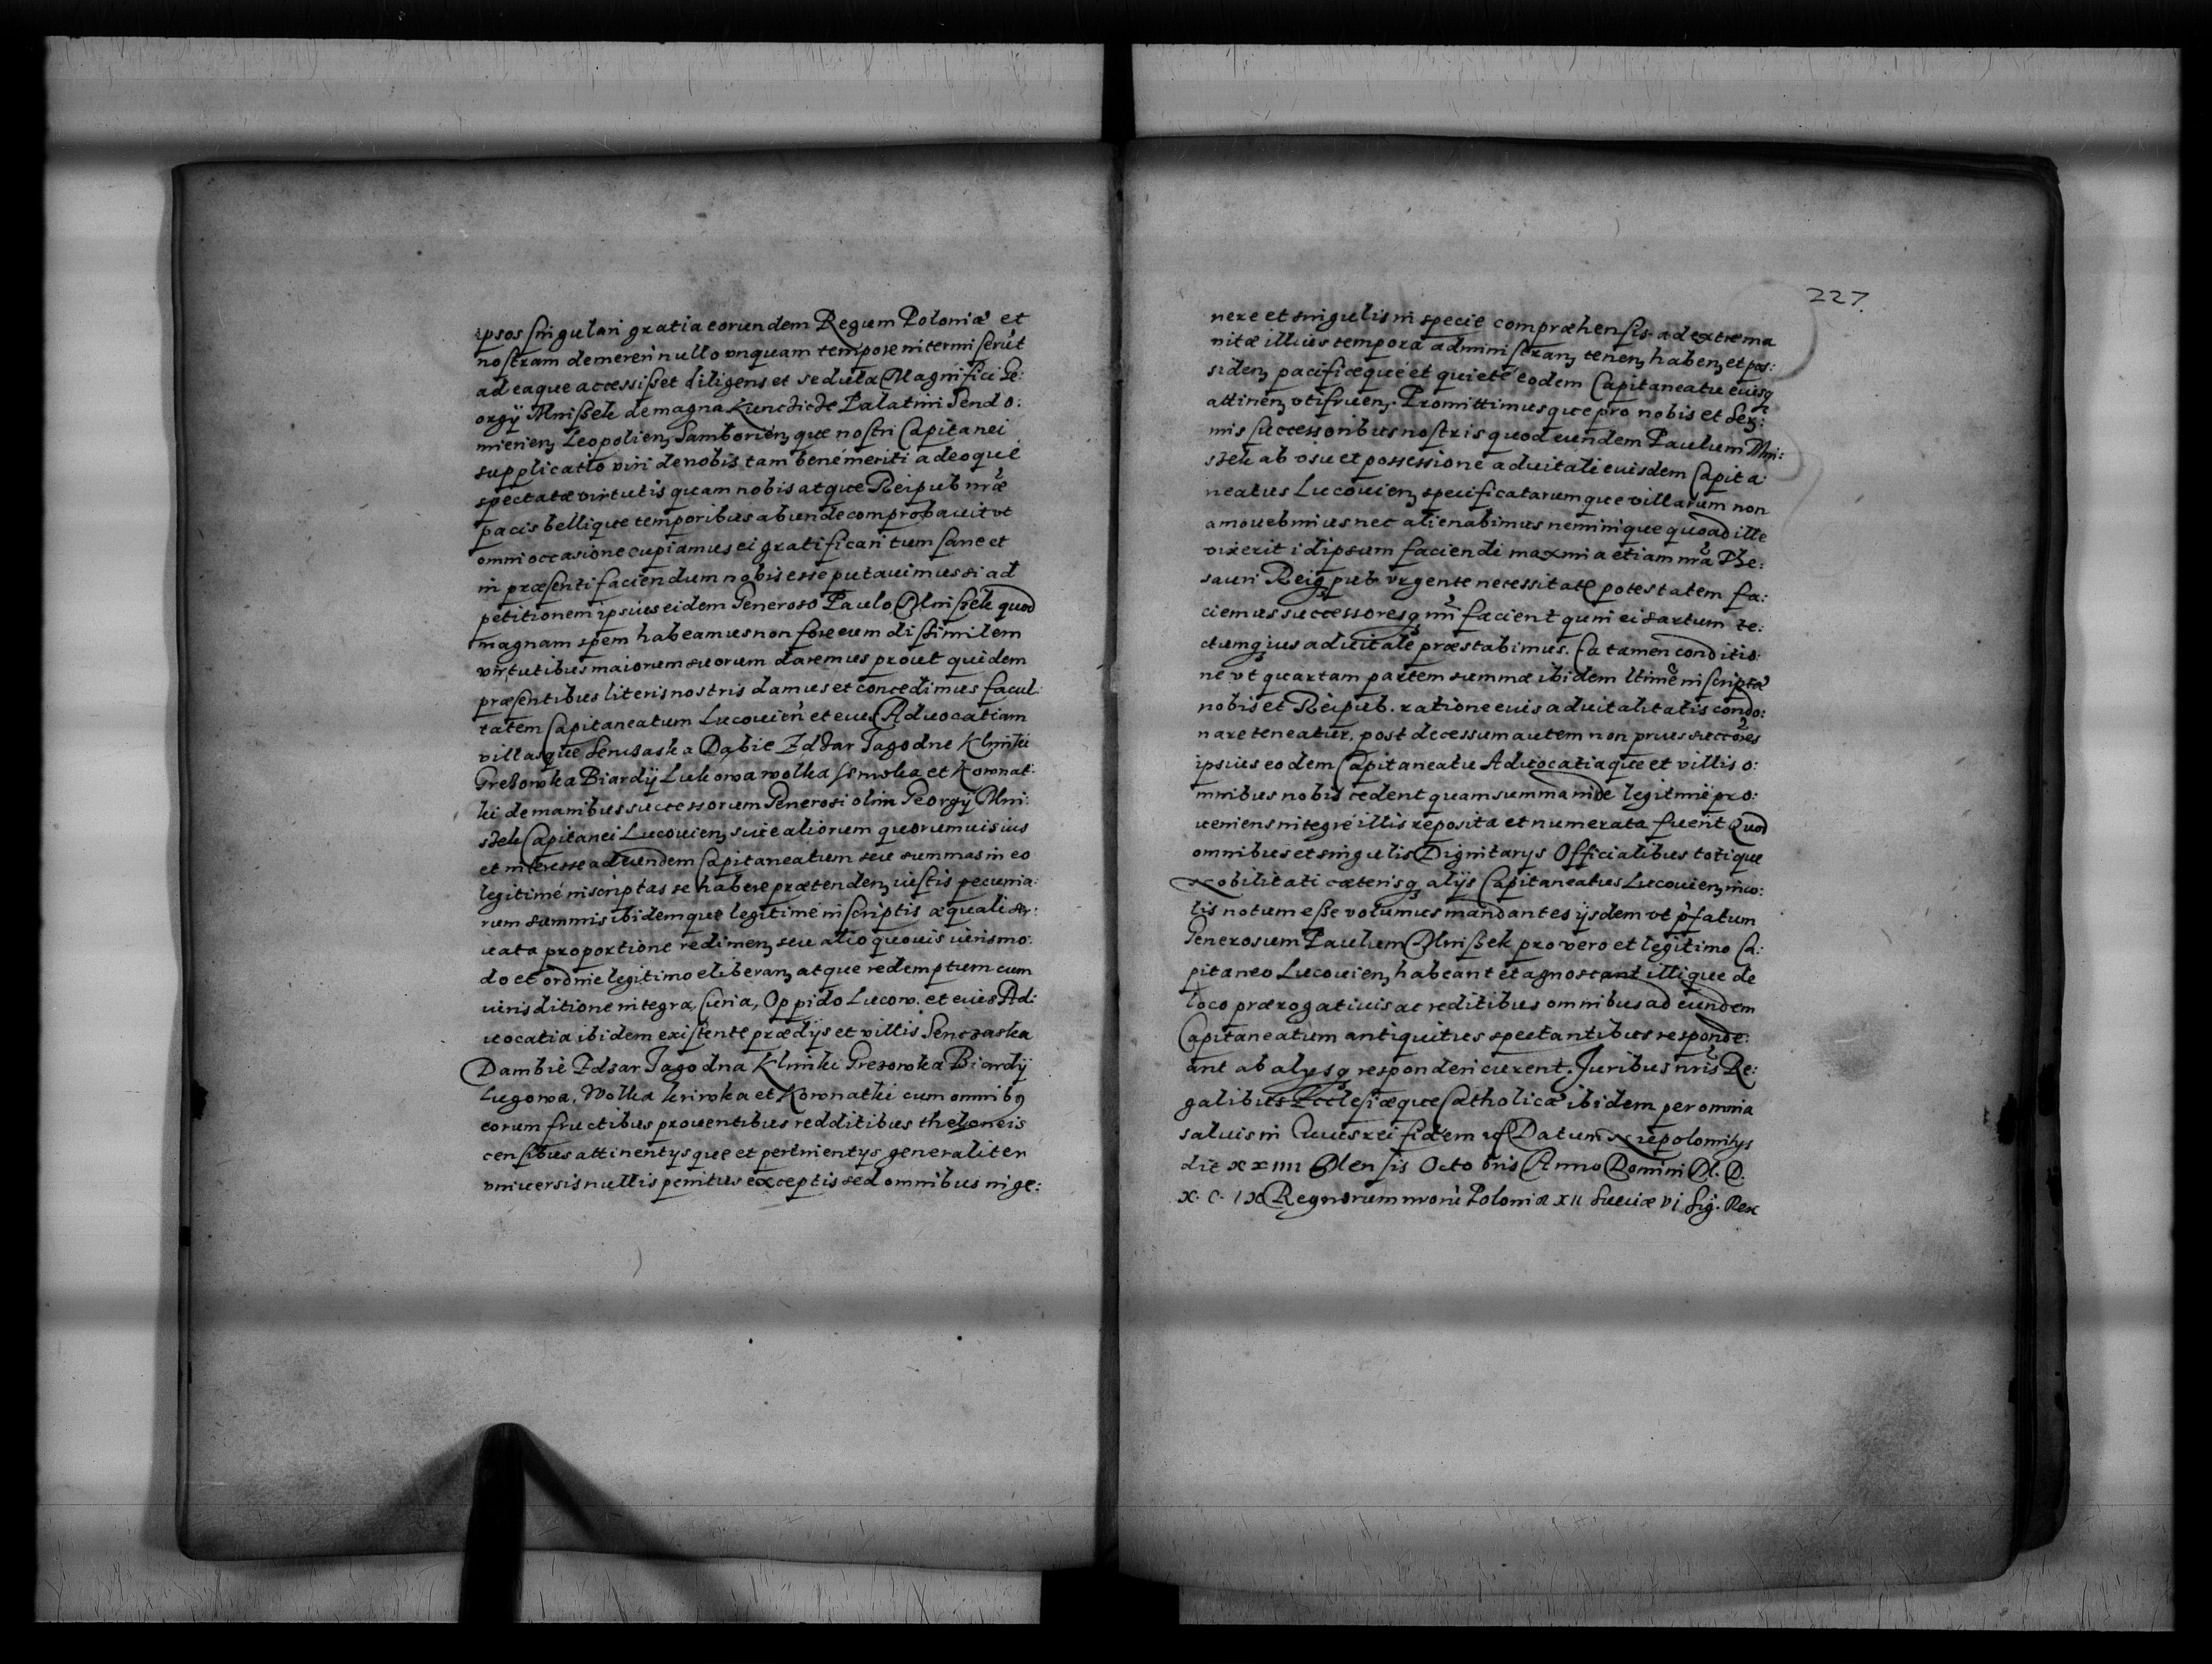 ipsos singulari gratia eorundem Regum Poloniæ et
nostram demereri nullo vnquam tempore intermiserūt
ad eaque accessisset diligens et sedula Magnifici Ge:
orgÿ Mnißek de magna Kunczicze Palatini Sendo:
mirien, Leopolien, Samborien, que nostri Capitanei
supplicatio viri de nobis tam bené meriti adeoqué
spectatæ virtutis quam nobis atque Reipub nr̃æ
pacis bellique temporibus abunde comprobauit vt
omni occasione cupiamus ei gratificari tum sane et
in præsenti faciendum nobis esse putauimus si ad
petitionem ipsius eidem Generoso Paulo Mnißek quod
magnam spem habeamus non fore eum dissimilem
virtutibus maiorum suorum daremus prout quidem
præsentibus literis nostris damus et concedimus facul:
tatem Capitaneatum Lucouien̄ et eius Aduocatiam
villasque Senczaska Dąbie Zdzar Jagodne Klimki
Grezowka Biardÿ Lukowa wolka et Kownat:
ki de manibus successorum Generosi olim Georgÿ Mni:
szek Capitanei Lucouien, siue aliorum quorumuis ius
et interesse ad eundem Capitaneatum seu summas in eo
legitimé inscriptas se habere prætenden, iustis pecunia:
rum summis ibidemque legitimé inscriptis æquali ser:
uata proportione redimen, seu alio quouis iuris mo:
do et ordine legitimo eliberan, atque redemptum cum
iurisditione integra, Curia, Oppido Lucow. et eius Ad:
uocatia ibidem existente prædÿs et villis Senczaska
Dambie Zdzar Jagodna Klimki Grezowka Biardÿ
Lugowa, Wolka kriwka et Kownatki cum omnibꝫ
eorum fructibus prouentibus redditibus theloneis
censibus attinentÿsque et pertinentÿs generaliter
vniuersis nullis penitus exceptis sed omnibus in ge:
227.
nere et singulis in specie compræhensis ad extrema
uitæ illius tempora administran, tenen, haben, et pos:
siden, pacificequé et quieté eodem Capitaneatu eiusq
attinen, vtifruen,. Promittimusque pro nobis et Ser:
mis successoribus nostris quod eundem Paulum Mni:
szek ab vsu et possessione aduitali eiusdem Capita
neatus Lucouien, specificatarumque villarum non
amouebimus nec alienabimus neminique quoad ille
vixerit id ipsum faciendi maxima etiam nr̃a The:
sauri Reiq pub. vrgente necessitate potestatem fa:
ciemus successoresq nr̃i facient quin ei sartum te:
ctumq ius aduitale præstabimus. Ea tamen conditio:
ne vt quartam partem summæ ibidem ltime inscriptæ
nobis et Reipub. ratione euis aduitalitatis condo:
nare teneatur, post decessum autem non prius succores
ipsius eodem Capitaneatu Aduocatiaque et villis o:
mnibus nobis cedent quam summa inde legitimé pro:
ueniens integré illis reposita et numerata fuerit Quod
omnibus et singulis Dignitarÿs Officialibus totique
Nobilitati cæterisq alÿs Capitaneatus Lucouien, inco:
lis notum esse volumus mandantes ÿsdem vt p̃fatum
Generosum Paulum Mnißek pro vero et legitimo Ca:
pitaneo Lucouien, habeant et agnoscant illique de
loco prærogatiuis ac reditibus omnibus ad eundem
Capitaneatum antiquitus spectantibus responde:
ant ab alysq responderi curent. Juribus nr̃is Re:
galibus Ecclesiæque Catholicæ ibidem per omnia
saluis in Cuius rei fidem Datum Niepolomitÿs
die xxiiii Mensis Octobris Anno Domini M. D.
X. C. IX Regnorum nrorū Poloniæ XII Sueciæ VI Sig. Rex